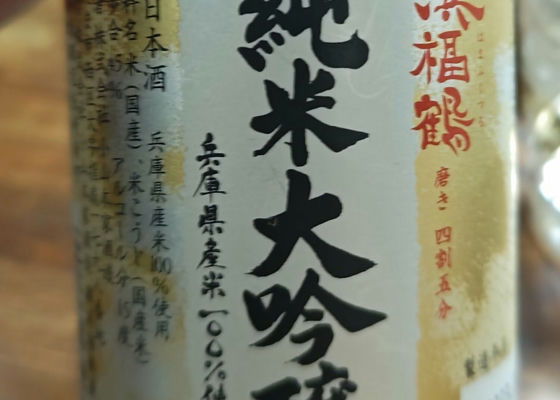 浜福鶴
はまふくつる
磨き 四割五分
純米大吟醸
兵庫県産米一〇〇%使
日本酒 兵庫県産米100%使用
料名 米(国産)、米こうじ(国産米)
歩合45% アルコール分15度
製造